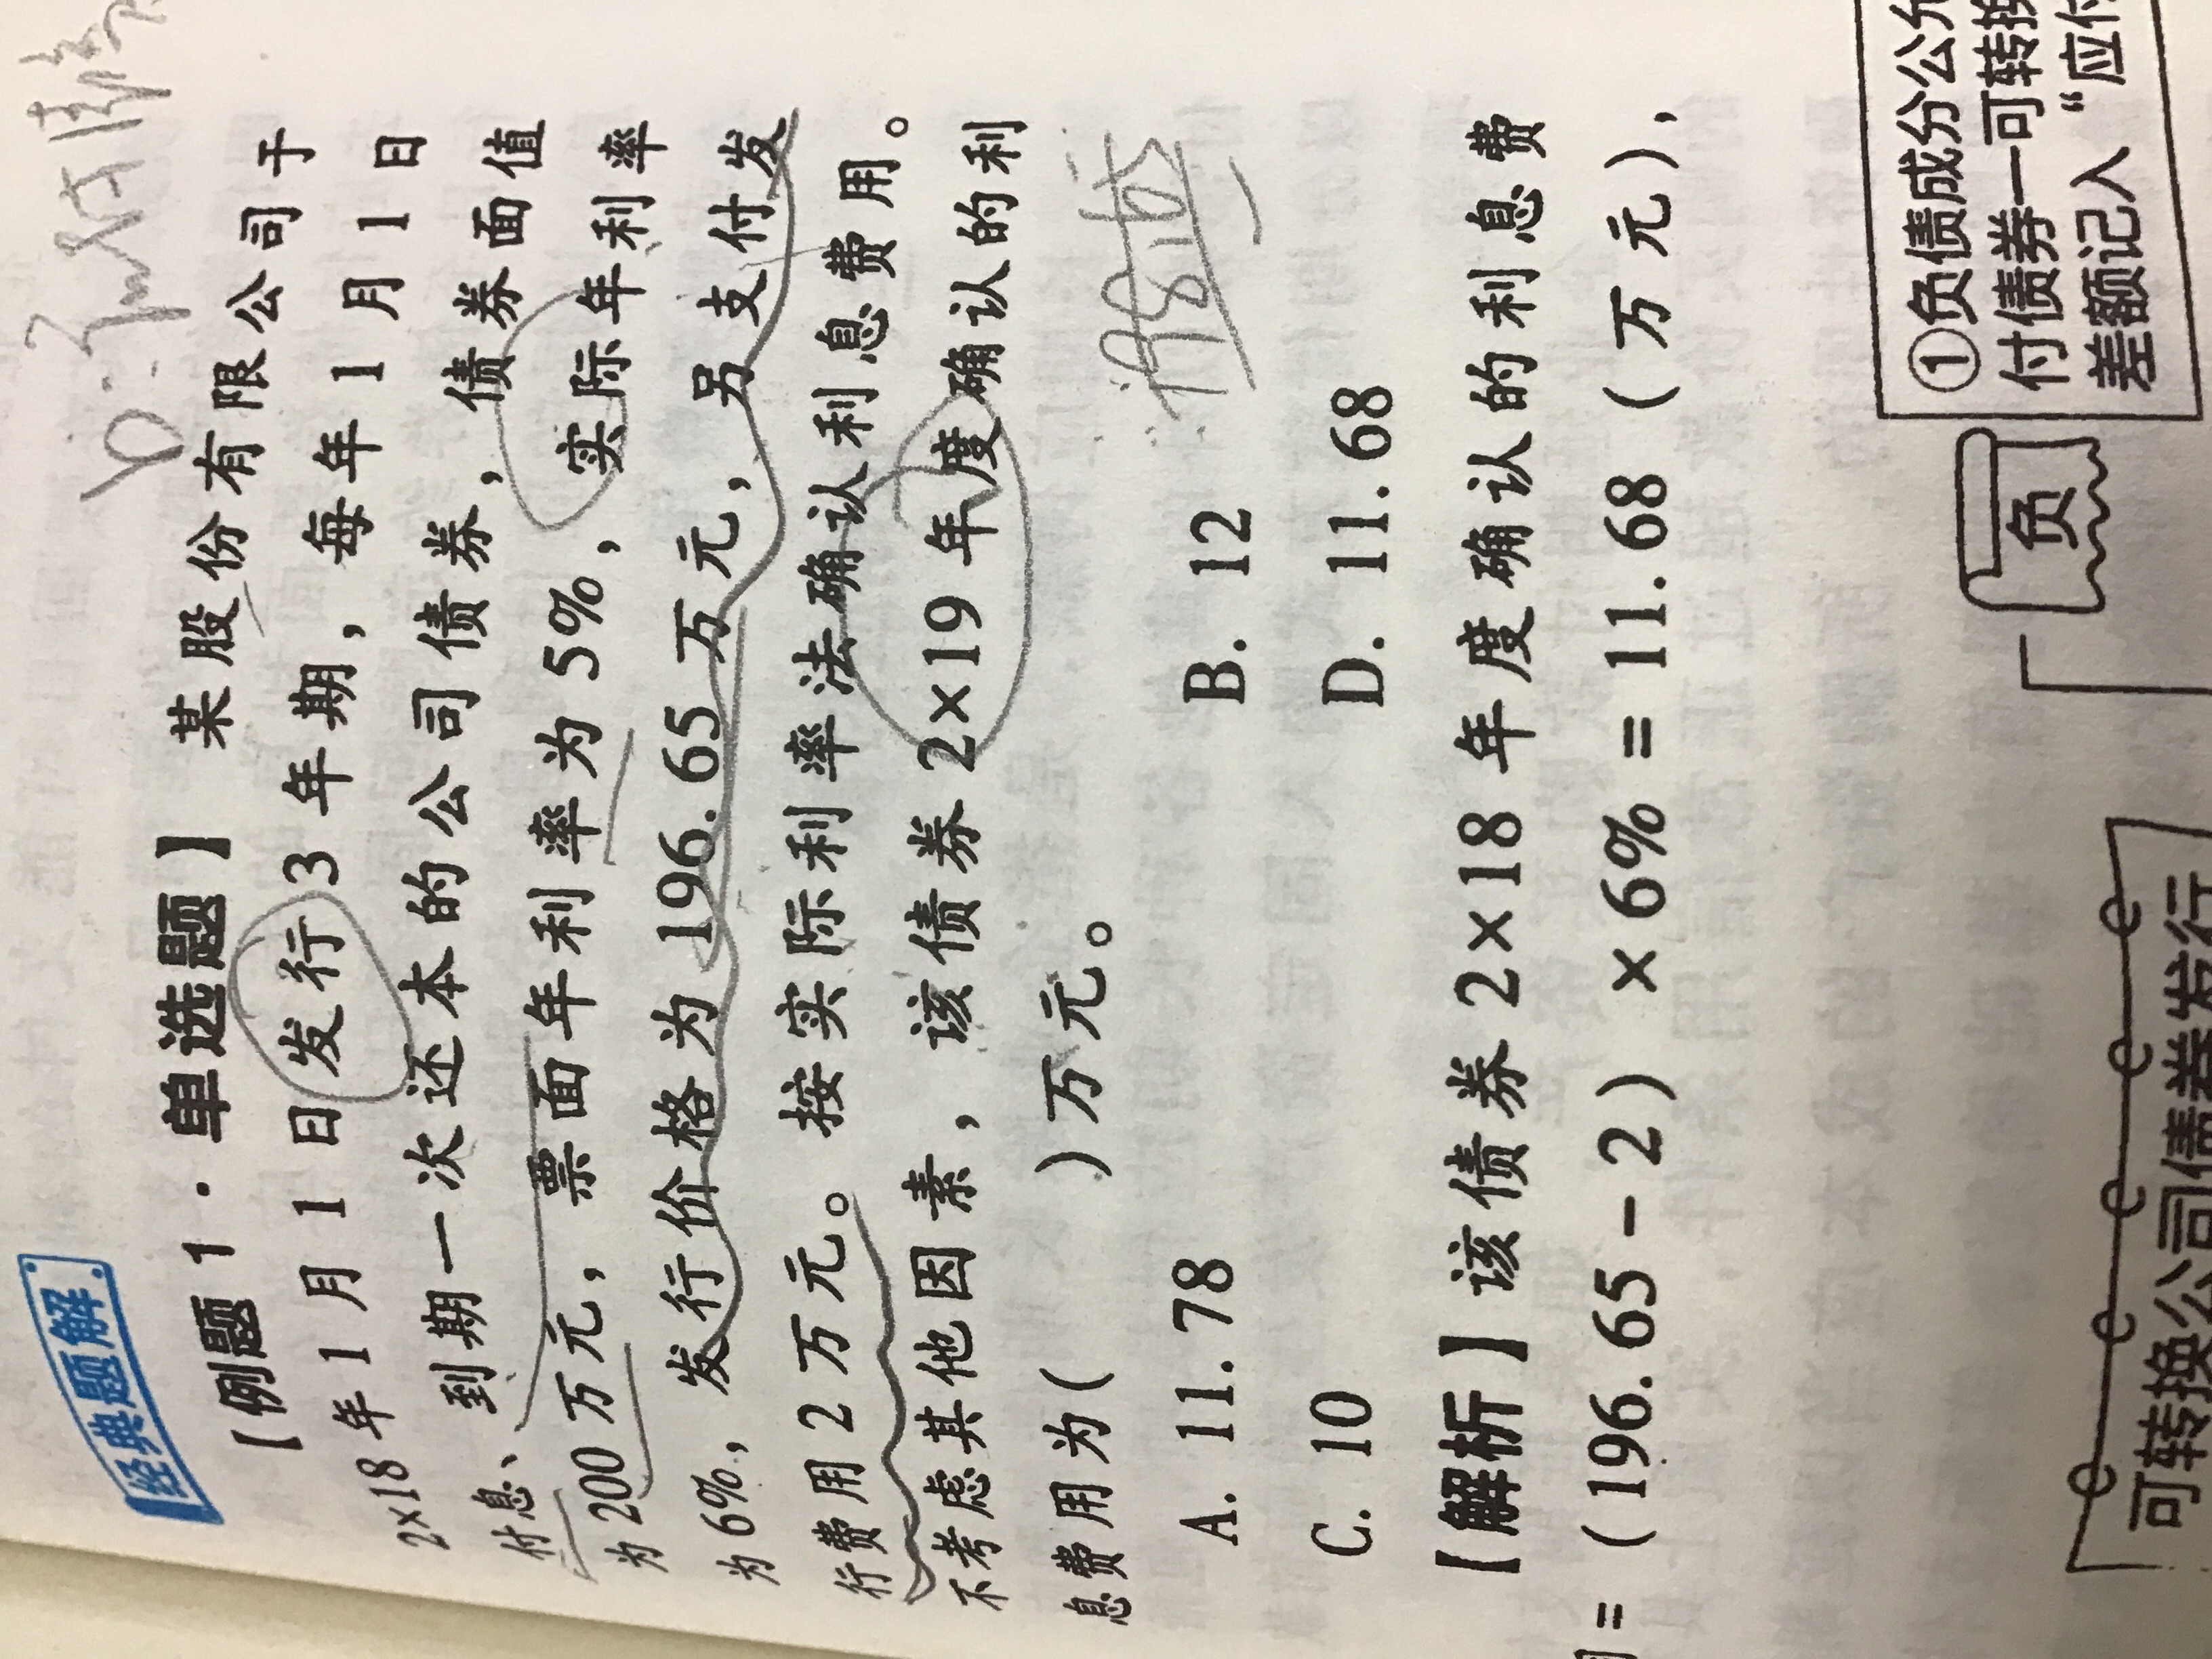 经典题解
【例题1·单选题】 某股份有限公司于
2×18年1月1日发行3年期，每年1月1日
付息、到期一次还本的公司债券，债券面值
为200万元，票面年利率为5%，实际年利率
为6%，发行价格为196.65万元，另支付发
行费用2万元。按实际利率法确认利息费用。
不考虑其他因素，该债券2×19年度确认的利
息费用为（ ）万元。
A. 11.78 B. 12
C. 10 D. 11.68
【解析】该债券2×18年度确认的利息费
用=（196.65-2）×6%=11.68（万元），
①负债成分公允
付债券—可转换
差额记入“应付
负
可转换公司债券发行